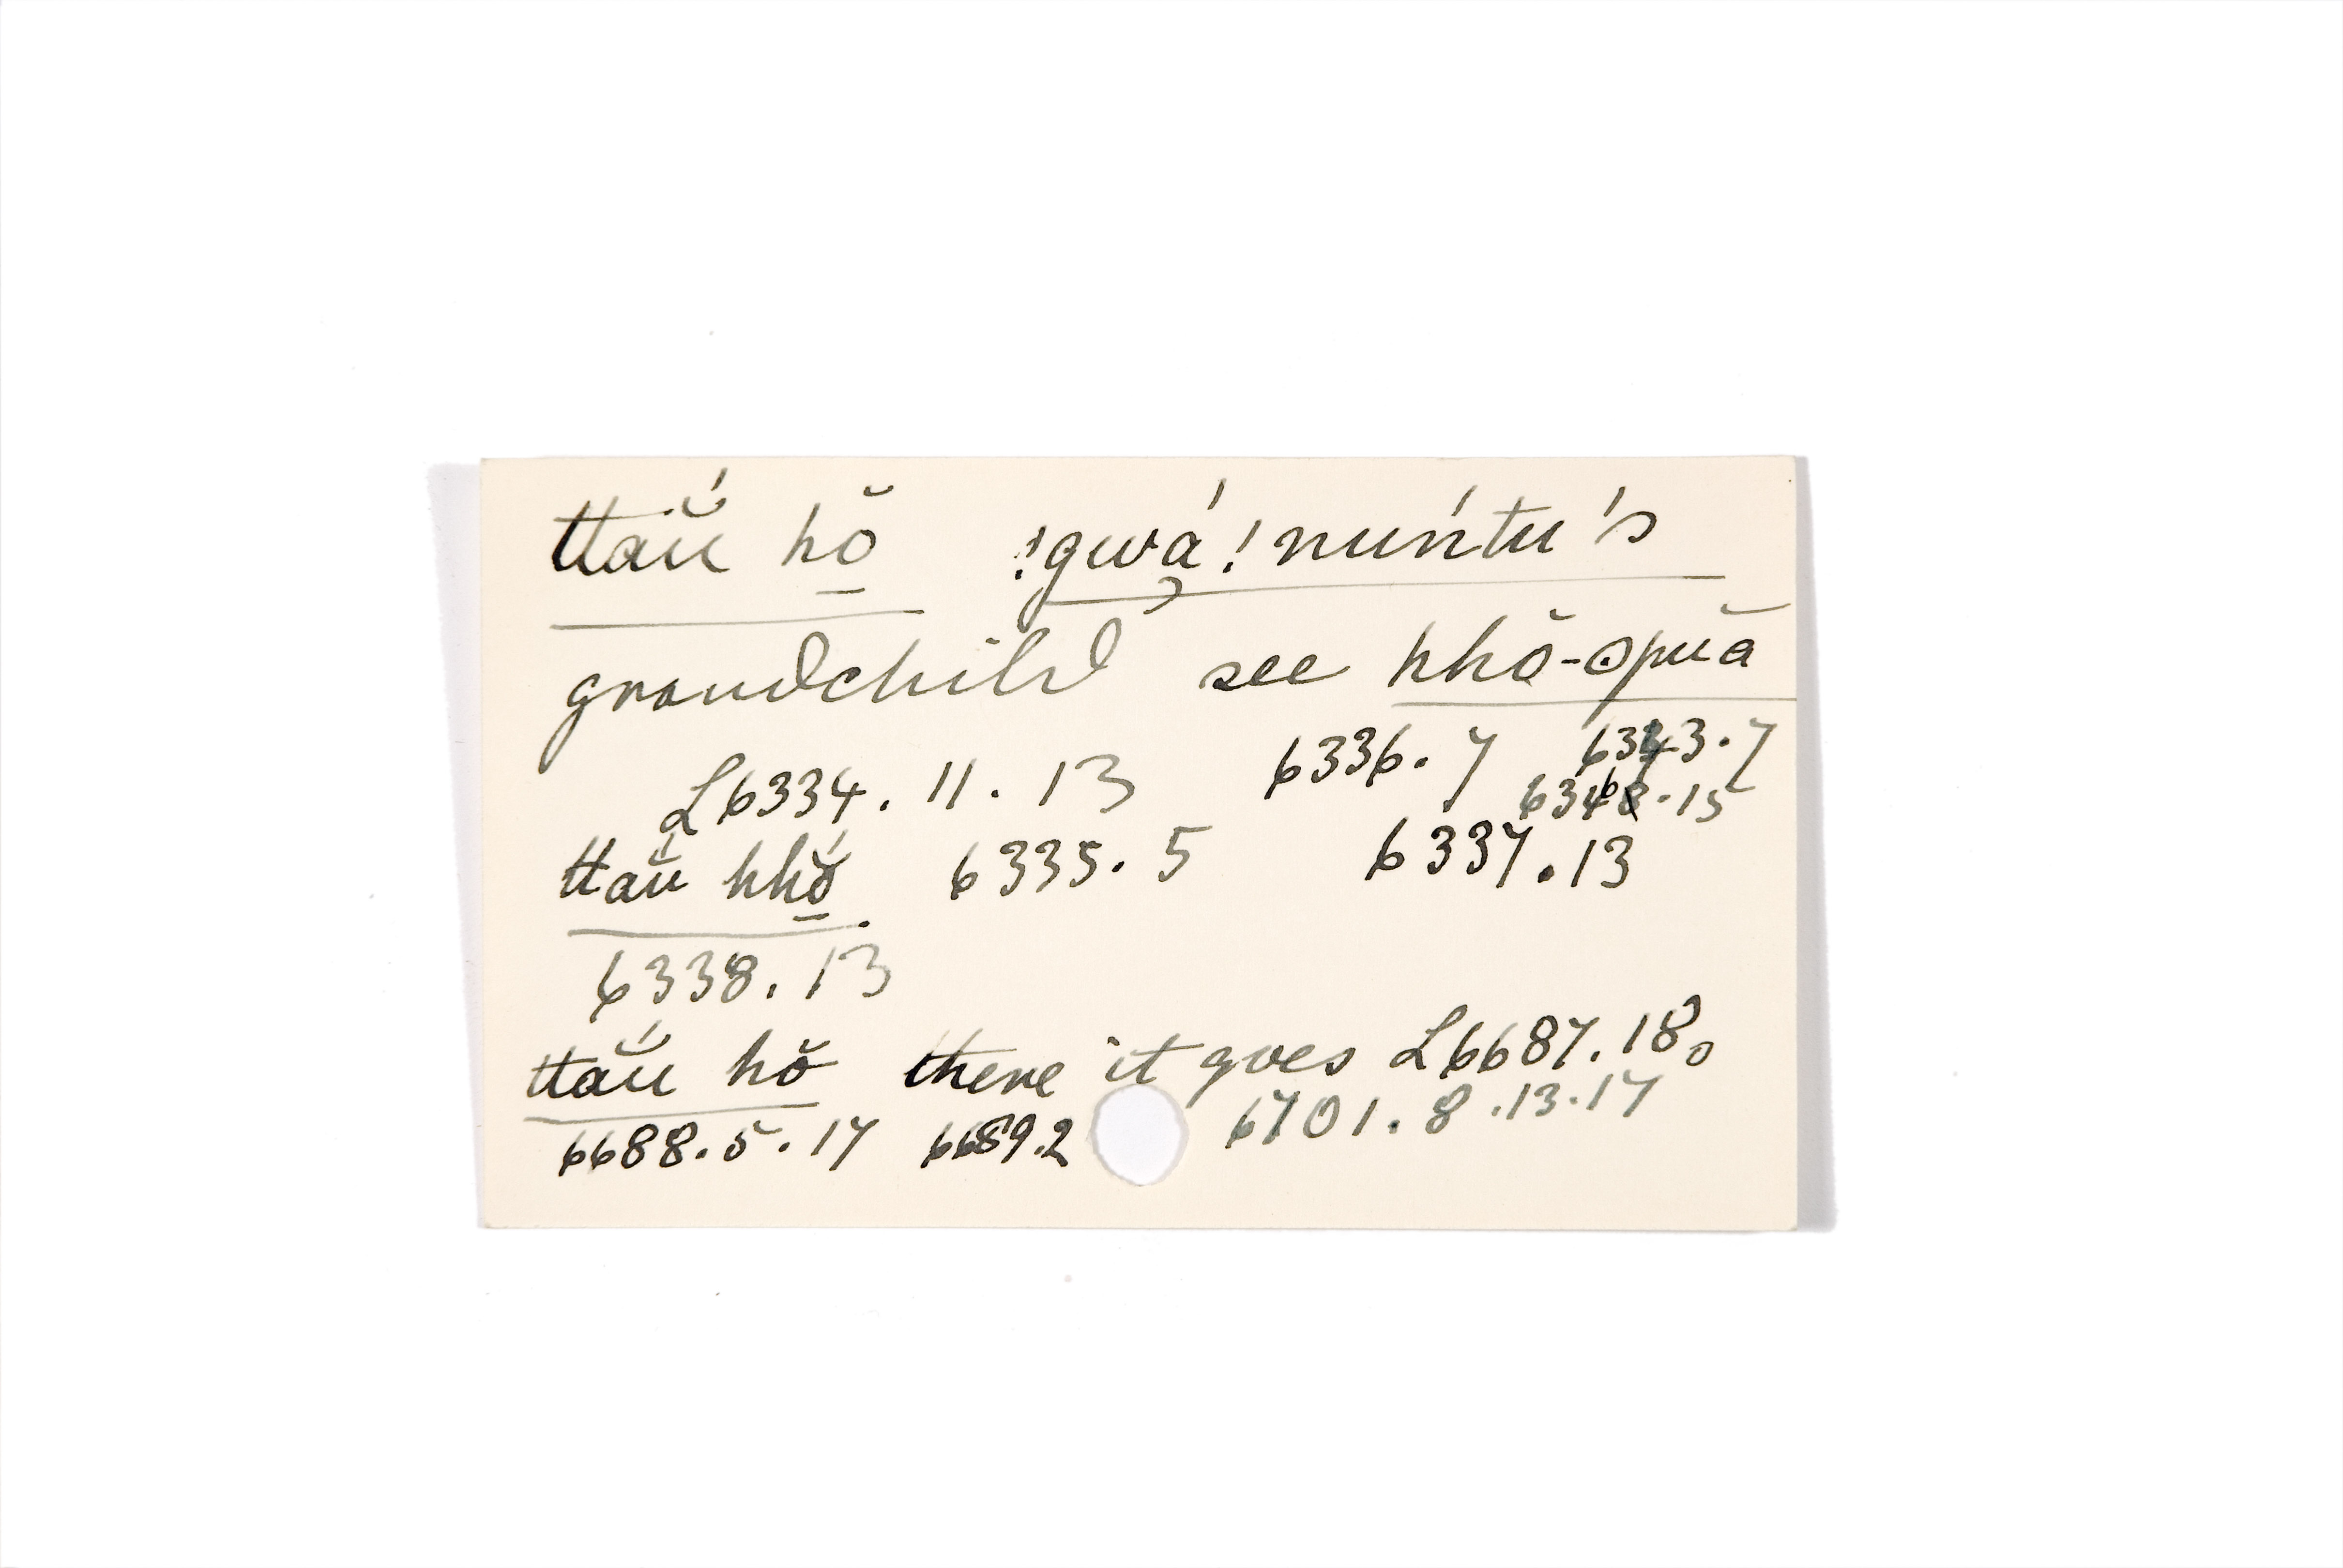 ttaŭ́ hŏ̱ !gwá̜!nuńtu's
grandchild see hhŏ-ʘpuă
L6334. 11. 13 6336. 7 6343.7
6346.15
ttaŭ́ hhŏ̱́. 6335. 5 6337.13
6338. 13
ttaŭ́ hŏ there it goes L6687. 18.
6688.5.17 6689.2 6701. 8.13.17